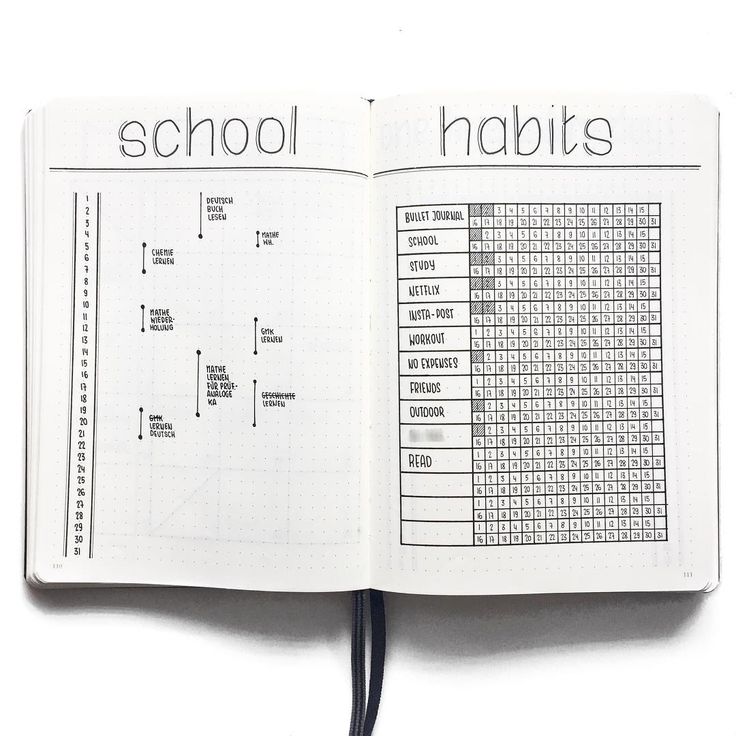 school
1
2
3
4
5
6
7
8
9
10
11
12
13
14
15
16
17
18
19
20
21
22
23
24
25
26
27
28
29
30
31
DEUTSCH
BUCH
LESEN
MATHE
WH.
CHEMIE
LERNEN
MATHE
WIEDER-
HOLUNG
GMK
LERNEN
MATHE
LERNEN
FÜR PRÜF-
ANALOGE
KA
GESCHICHTE
LERNEN
GMK
LERNEN
DEUTSCH
110
habits
BULLET JOURNAL
3 4 5 6 7 8 9 10 11 12 13 14 15
16 17 18 19 20 21 22 23 24 25 26 27 28 29 30 31
SCHOOL
2 3 4 5 6 7 8 9 10 11 12 13 14 15
16 17 18 19 20 21 22 23 24 25 26 27 28 29 30 31
STUDY
3 4 5 6 7 8 9 10 11 12 13 14 15
16 17 18 19 20 21 22 23 24 25 26 27 28 29 30 31
NETFLIX
3 4 5 6 7 8 9 10 11 12 13 14 15
16 17 18 19 20 21 22 23 24 25 26 27 28 29 30 31
INSTA-POST
3 4 5 6 7 8 9 10 11 12 13 14 15
16 17 18 19 20 21 22 23 24 25 26 27 28 29 30 31
WORKOUT
1 2 3 4 5 6 7 8 9 10 11 12 13 14 15
16 17 18 19 20 21 22 23 24 25 26 27 28 29 30 31
NO EXPENSES
2 3 4 5 6 7 8 9 10 11 12 13 14 15
16 17 18 19 20 21 22 23 24 25 26 27 28 29 30 31
FRIENDS
1 2 3 4 5 6 7 8 9 10 11 12 13 14 15
16 17 18 19 20 21 22 23 24 25 26 27 28 29 30 31
OUTDOOR
2 3 4 5 6 7 8 9 10 11 12 13 14 15
16 17 18 19 20 21 22 23 24 25 26 27 28 29 30 31
2 3 4 5 6 7 8 9 10 11 12 13 14 15
16 17 18 19 20 21 22 23 24 25 26 27 28 29 30 31
READ
1 2 3 4 5 6 7 8 9 10 11 12 13 14 15
16 17 18 19 20 21 22 23 24 25 26 27 28 29 30 31
1 2 3 4 5 6 7 8 9 10 11 12 13 14 15
16 17 18 19 20 21 22 23 24 25 26 27 28 29 30 31
1 2 3 4 5 6 7 8 9 10 11 12 13 14 15
16 17 18 19 20 21 22 23 24 25 26 27 28 29 30 31
1 2 3 4 5 6 7 8 9 10 11 12 13 14 15
16 17 18 19 20 21 22 23 24 25 26 27 28 29 30 31
111